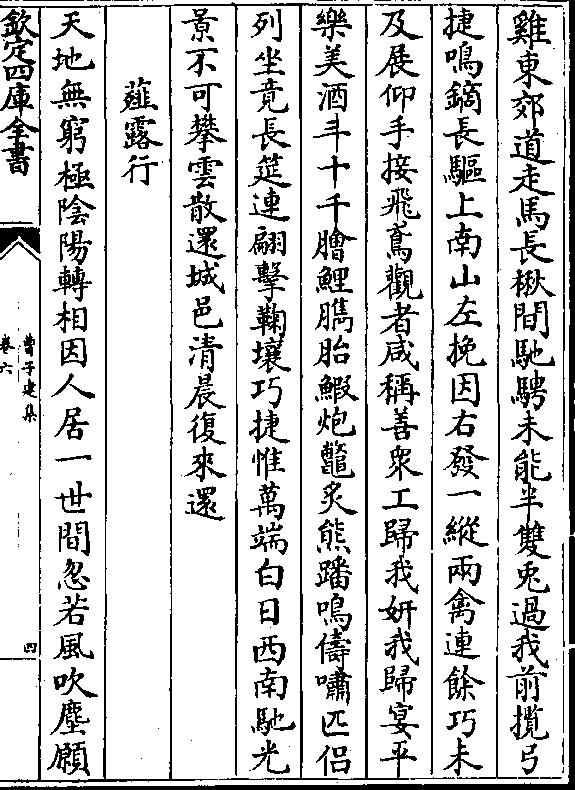 雞東郊道走馬長楸間馳騁未能半雙兎過我前攬弓
捷鳴鏑長驅上南山左挽因右發一縱兩禽連餘巧未
及展仰手接飛鳶觀者咸稱善衆工歸我妍我歸宴平
樂美酒斗十千膾鯉臇胎鰕炮鼈炙熊蹯鳴儔嘯匹侶
列坐竟長筵連翩擊鞠壤巧捷惟萬端白日西南馳光
景不可攀雲散還城邑清晨復來還
薤露行
天地無窮極陰陽轉相因人居一世間忽若風吹塵願
欽定四庫全書
曹子建集
卷六
四